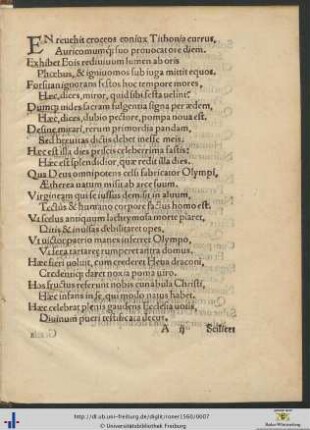 EN reuehit croceos coniux Tithonia currus,
Auricomumq; suo prouocat ore diem.
Exhibet Eois rediuiuum lumen ab oris
Phœbus, & igniuomos sub iuga mittit equos.
Forsitan ignoram festos hoc tempore mores,
Hæc, dices, miror, quid sibi festa uelint?
Dumq; uides sacram fulgentia signa per ædem,
Hæc, dices, dubio pectore, pompa noua est.
Desine mirari, rerum primordia pandam,
Sed breuibus dictis debet inesse meis.
Hæc est illa dies priscis celeberrima fastis:
Hæc est splendidior, quæ redit illa dies.
Qua Deus omnipotens celsi fabricator Olympi,
Ætherea natum misit ab arce suum.
Virgineam qui se iussus demisit in aluum,
Tectus & humano corpore factus homo est.
Vt scelus antiquum lachrymosa morte piaret,
Ditis & inuisas debilitaret opes,
Vt uictor patrio manes inferret Olympo,
Vi fera tartarei rumperet antra domus.
Hæc sieri uoluit, cum crederet Heua draconi,
Credentiq; daret noxia poma uiro.
Hos fructus referunt nobis cunabula Christi,
Hæc infans in se, qui modo natus habet.
Hæc celebrat plenis gaudens Ecclesia uotis,
Diuinum pueri testificata decus.
A ij Scilicet
http://dl.ub.uni-freiburg.de/diglit/roner1560/0007
© Universitätsbibliothek Freiburg
Baden-Württemberg